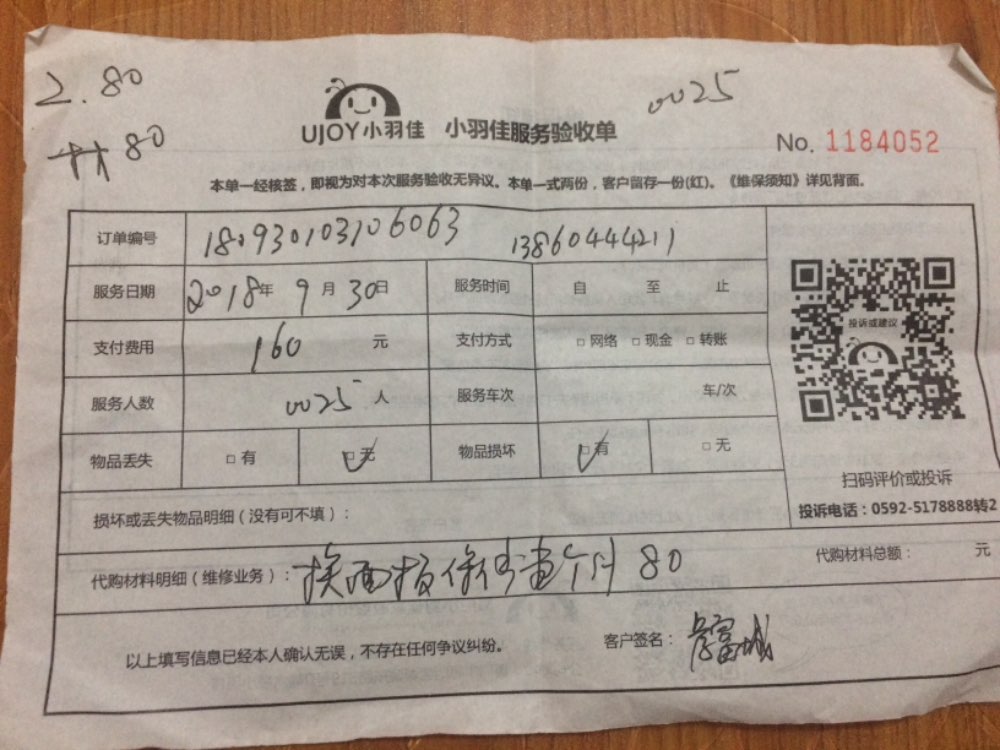 2.80
0025
UJOY小羽佳 小羽佳服务验收单
材 80
No. 1184052
本单一经核签，即视为对本次服务验收无异议。本单一式两份，客户留存一份(红)。《维保须知》详见背面。
订单编号 180930103106063 13860444211
服务日期 2018年 9月 30日 服务时间 自 至 止
投诉或建议
支付费用 160 元 支付方式 □网络 □现金 □转账
服务人数 0025 人 服务车次 车/次
物品丢失 □有 □无 物品损坏 □有 □无
扫码评价或投诉
损坏或丢失物品明细（没有可不填）：
投诉电话：0592-5178888转2
代购材料明细（维修业务）： 换面板保修壹个月 80 代购材料总额： 元
以上填写信息已经本人确认无误，不存在任何争议纠纷。 客户签名：